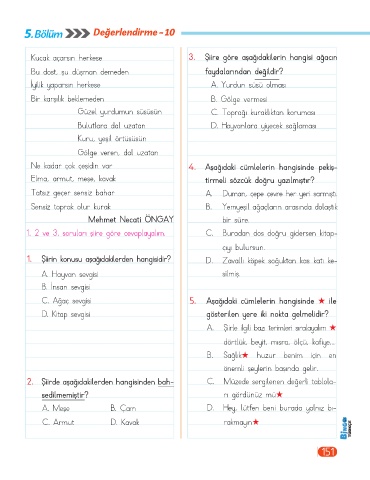 5.Bölüm Değerlendirme - 10
Kucak açarsın herkese
Bu dost, şu düşman demeden
İyilik yaparsın herkese
Bir karşılık beklemeden
Güzel yurdumun süsüsün
Bulutlara dal uzatan
Kuru, yeşil örtüsüsün
Gölge veren, dal uzatan
Ne kadar çok çeşidin var
Elma, armut, meşe, kavak
Tatsız geçer sensiz bahar
Sensiz toprak olur kurak
Mehmet Necati ÖNGAY
1, 2 ve 3. soruları şiire göre cevaplayalım.
1. Şiirin konusu aşağıdakilerden hangisidir?
A. Hayvan sevgisi
B. İnsan sevgisi
C. Ağaç sevgisi
D. Kitap sevgisi
2. Şiirde aşağıdakilerden hangisinden bah-
sedilmemiştir?
A. Meşe B. Çam
C. Armut D. Kavak
3. Şiire göre aşağıdakilerin hangisi ağacın
faydalarından değildir?
A. Yurdun süsü olması
B. Gölge vermesi
C. Toprağı kuraklıktan koruması
D. Hayvanlara yiyecek sağlaması
4. Aşağıdaki cümlelerin hangisinde pekiş-
tirmeli sözcük doğru yazılmıştır?
A. Duman, çepe çevre her yeri sarmıştı.
B. Yemyeşil ağaçların arasında dolaştık
bir süre.
C. Buradan dos doğru gidersen kitap-
çıyı bulursun.
D. Zavallı köpek soğuktan kas katı ke-
silmiş.
5. Aşağıdaki cümlelerin hangisinde ★ ile
gösterilen yere iki nokta gelmelidir?
A. Şiirle ilgili bazı terimleri sıralayalım ★
dörtlük, beyit, mısra, ölçü, kafiye...
B. Sağlık★ huzur benim için en
önemli şeylerin başında gelir.
C. Müzede sergilenen değerli tablola-
rı gördünüz mü★
D. Hey, lütfen beni burada yalnız bı-
rakmayın★
151